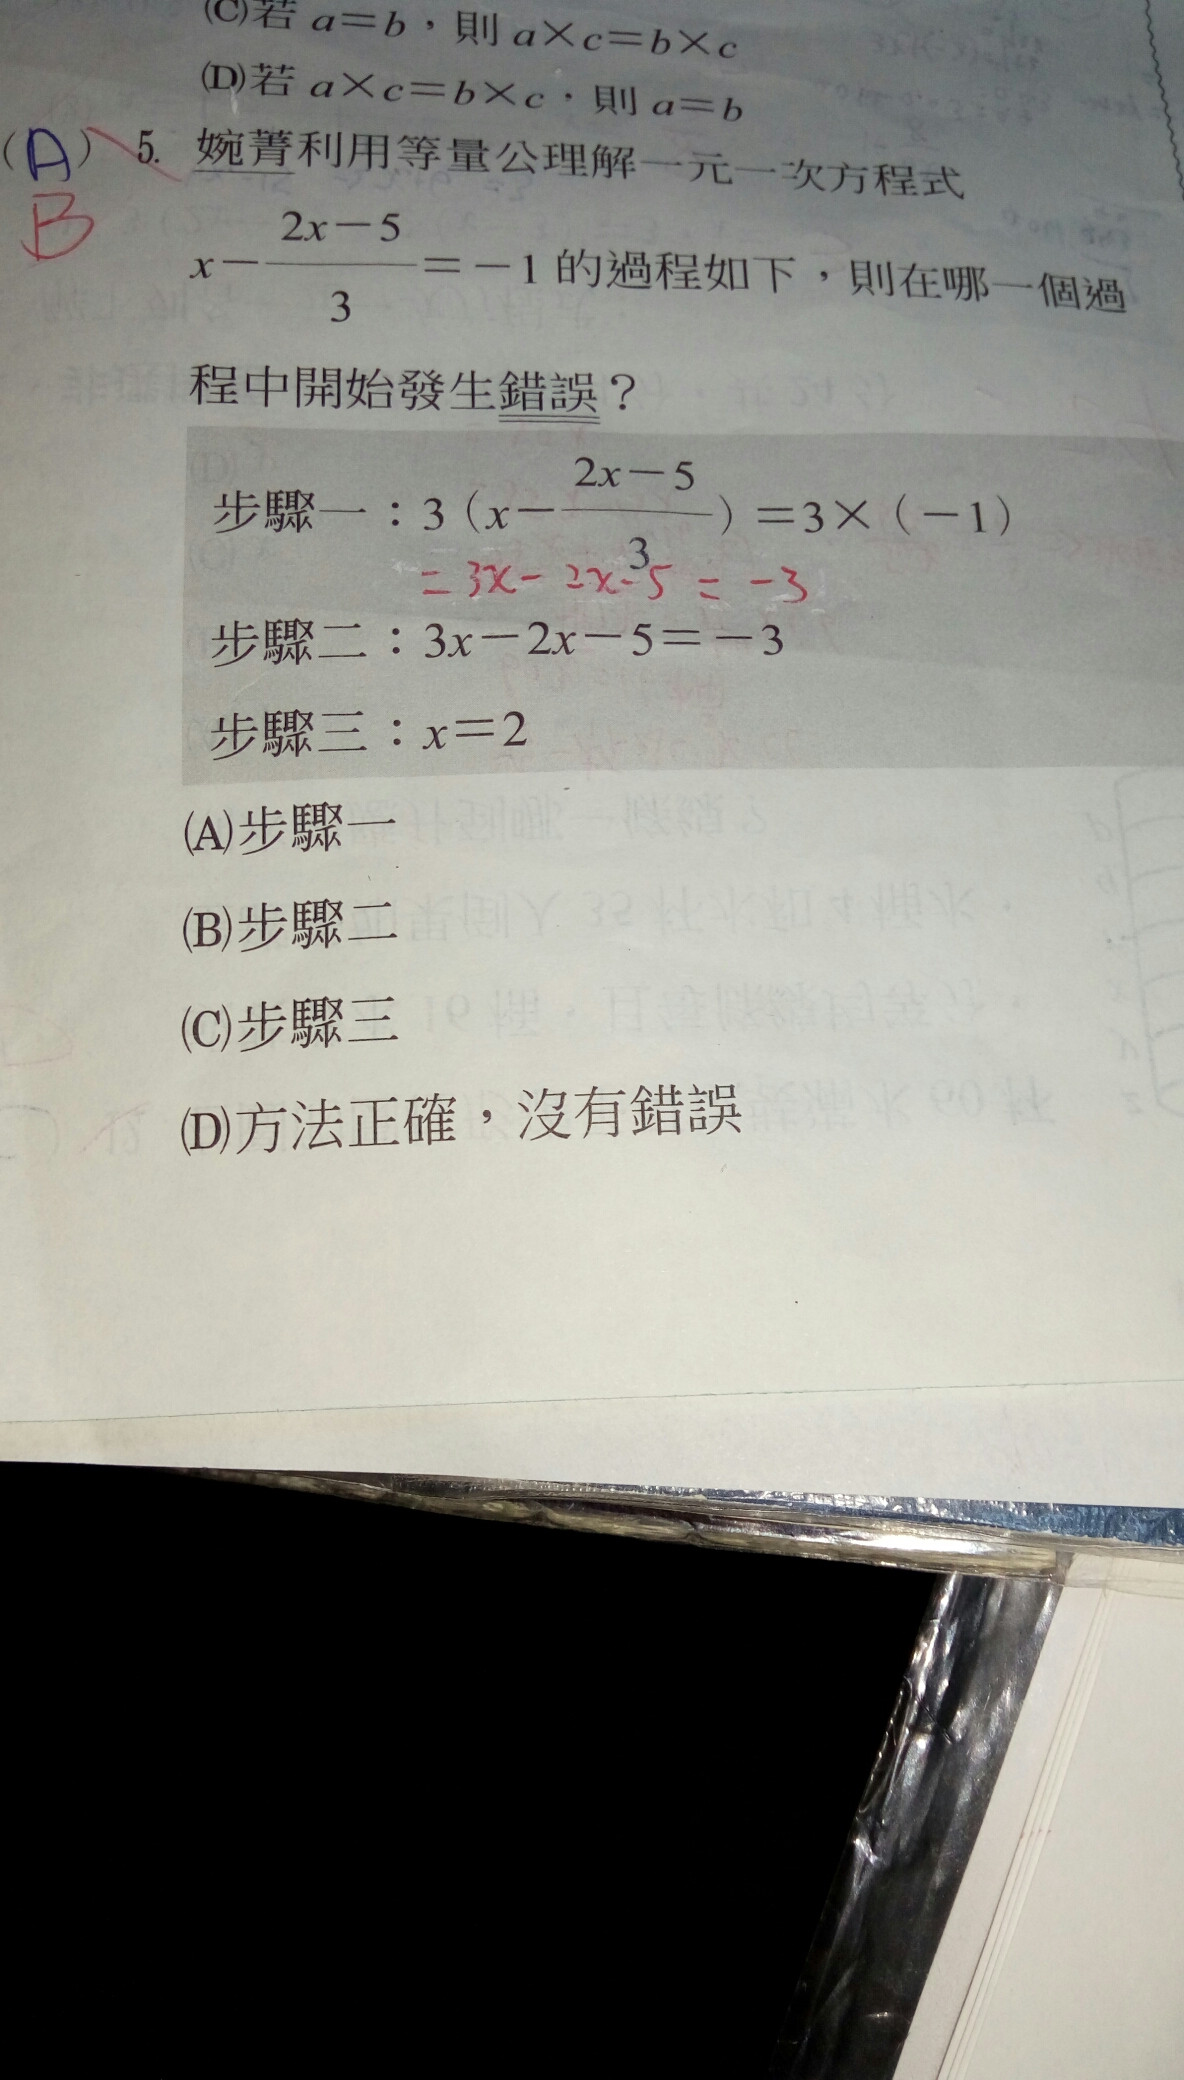 (C)若 a=b，則 a×c=b×c
(D)若 a×c=b×c，則 a=b
(A) 5. 婉菁利用等量公理解一元一次方程式
B
x－(2x－5)/3＝－1 的過程如下，則在哪一個過
程中開始發生錯誤？
步驟一：3（x－(2x－5)/3）＝3×（－1）
= 3x - 2x - 5 = -3
步驟二：3x－2x－5＝－3
步驟三：x＝2
(A)步驟一
(B)步驟二
(C)步驟三
(D)方法正確，沒有錯誤